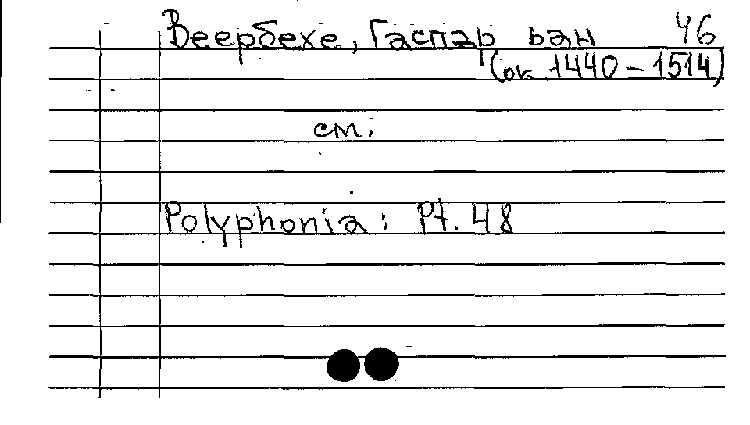 Веербехе, Гаспар ван 46
(ок. 1440 - 1514)
см.
Polyphonia: Pt. 48